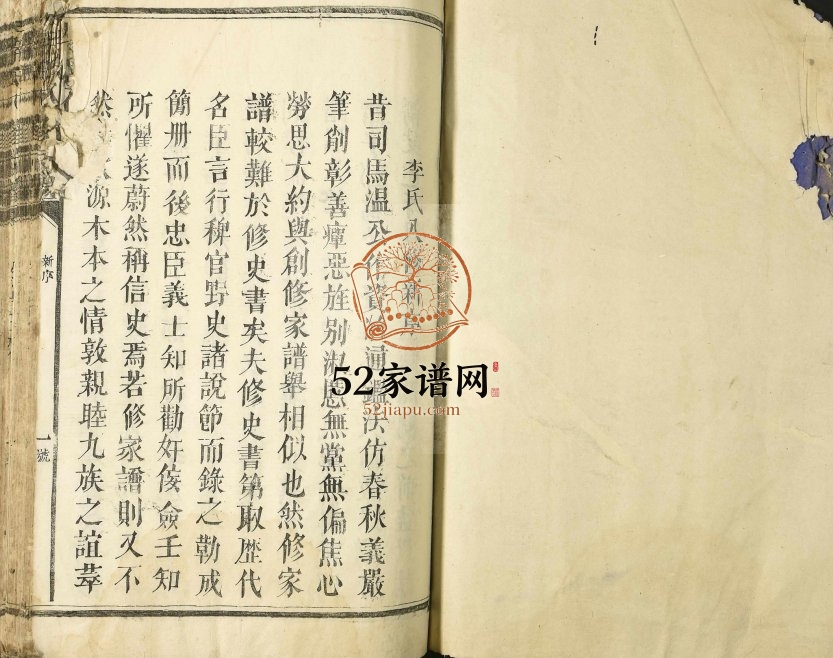 李氏八修新序
昔司馬温公作資治通鑑法仿春秋義嚴
筆削彰善癉惡旌别淑慝無黨無偏焦心
勞思大約與創修家譜舉相似也然修家
譜較難於修史書矣夫修史書第取歷代
名臣言行稗官野史諸說節而錄之勒成
簡册而後忠臣義士知所勸奸佞僉壬知
所懼遂蔚然稱信史焉若修家譜則又不
然 源木本之情敦親睦九族之誼萃
新序
一號
52家谱网
52jiapu.com